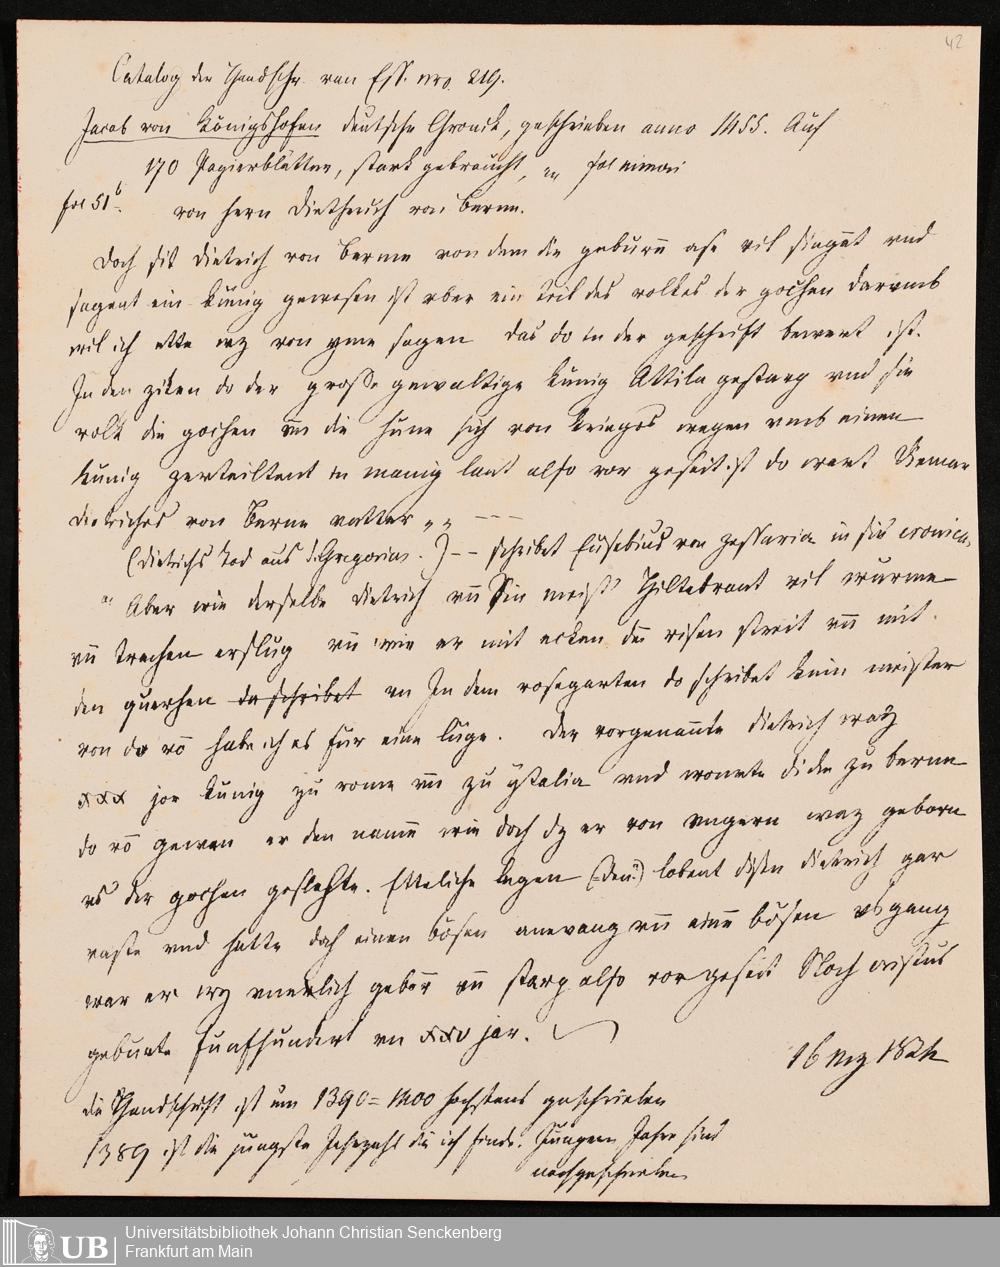 42
Catalog der Handschr. von Ess. nro. 219.
Jacob von Königshofen deutsche Chronik, geschrieben anno 1455. Auf
170 Papierblätter, stark gebraucht, in fol
fol 51b. von hern Dietherich von berne.
Doch sit Dietrich von berne von dem die geburen als vil singent vnd
sagent ein künig gewesen ist vber ein teil des volkes der gothen darvmb
wil ich ette wz von yme sagen das do in der geschrift bewert ist.
In den ziten do der grosse gewaltige künig Attila gestarp vnd sin
volk die gothen vn die hune sich von krieges wegen vmb einen
künig zerteiltent in manig lant also vor geseit ist do wart
dietriches von berne vatter „ „ – – –
(Dietrichs Tod aus S. Gregorius.) – – schribet Eusebius von zessaria in sin cronica
Aber wie derselbe Dietrich vn Sin meist' Hiltebrant vil wurme
vn trachen erslug vn wie er mit ecken den risen streit vn mit
den querhen da schribet vn In dem rosegarten do schribet kein meister
von do vō habe ich es für eine lüge. Der vorgenante Dietrich waz
xxx jor künig zu rome vn zu ytalia vnd wonete dicke zu berne
do vō gewan er den name wie doch dz er von vngern waz geborn
vs der gothen geslehte. Etteliche legen (=den) lobent disen dietrich gar
vaste vnd hatte doch einen bösen anevang vn eine bösen vsgang
war er wz vnerlich geborn vn starp also vor geseit Noch cristus
geburte funfhundert vn xxv jar.
16 Mz 182
die Handschrift ist um 1390=1400 höchstens geschrieben
1389 ist die jüngste Jahrzahl die ich finde. Jüngere Jahre sind
nachgeschrieben
UB Universitätsbibliothek Johann Christian Senckenberg
Frankfurt am Main